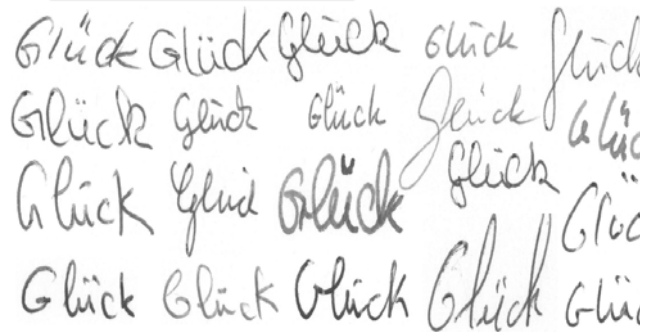 Glück Glück Glück Glück Glück
Glück Glück Glück Glück Glüc
Glück Glück Glück Glück Glüc
Glück Glück Glück Glück Glüc